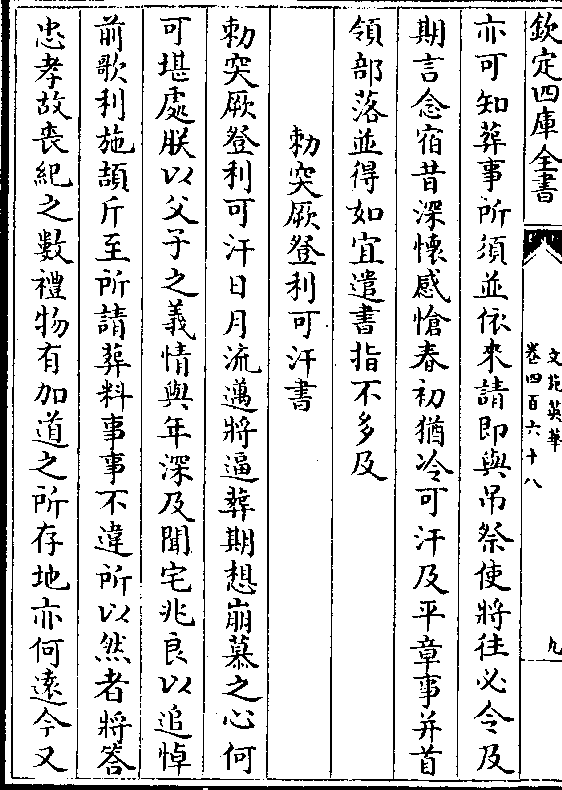 欽定四庫全書
文苑英華
卷四百六十八
九
亦可知葬事所須並依來請即與吊祭使將往必令及
期言念宿昔深懷感愴春初猶冷可汗及平章事并首
領部落並得如宜遣書指不多及
勅突厥登利可汗書
勅突厥登利可汗日月流邁將逼葬期想崩慕之心何
可堪處朕以父子之義情與年深及聞宅兆良以追悼
前歌利施頡斤至所請葬料事事不違所以然者將答
忠孝故喪紀之數禮物有加道之所存地亦何遠今又